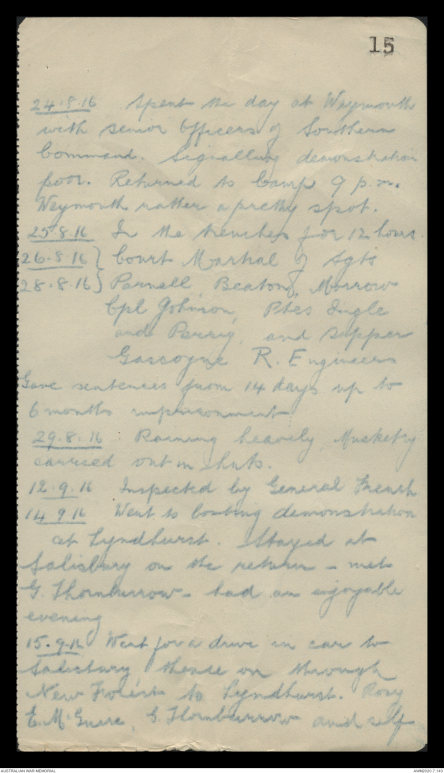 15
24.8.16 Spent the day at Weymouth
with senior Officers of Southern
Command. Signalling demonstration
poor. Returned to Camp 9 p.m.
Weymouth rather a pretty spot.
25.8.16 In the trenches for 12 hours.
26.8.16 } Court Martial of Sgts
28.8.16 } Parnell Beaton, Morrow
Cpl Johnson, Ptes Ingle
and Perry, and Sapper
Gascoyne R. Engineers
Gave sentences from 14 days up to
6 months imprisonment
29.8.16 Raining heavily. Musketry
carried out in huts.
12.9.16 Inspected by General French
14 9 16 Went to demonstration
at Lyndhurst. Stayed at
Salisbury on the return - met
G. Thornburrow - had an enjoyable
evening
15.9.16 Went for a drive in car to
Salisbury thence on through
New Forest to Lyndhurst. Roxy
E. McGuire, G. Thornburrow and self
AUSTRALIAN WAR MEMORIAL